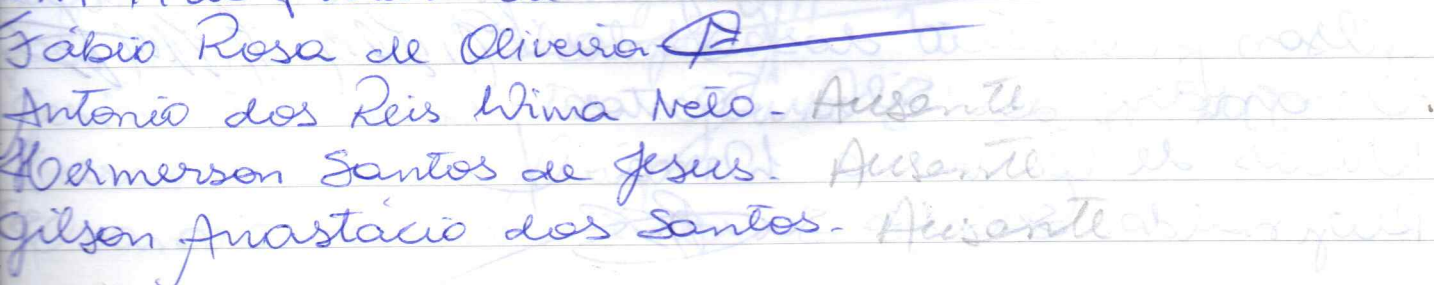 Fábio Rosa de Oliveira
Antonio dos Reis Wima Neto - Ausente
Hermerson Santos de Jesus. Ausente
Gilson Anastácio dos Santos. Ausente